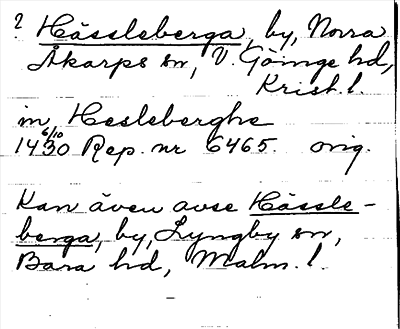 ? Hässleberga, by, Norra
Åkarps sn, V. Göinge hd,
Krist. l.
in Hesleberghe
6/10
1430 Rep. nr 6465. orig.
Kan även avse Hässle-
berga, by, Lyngby sn,
Bara hd, Malm. l.